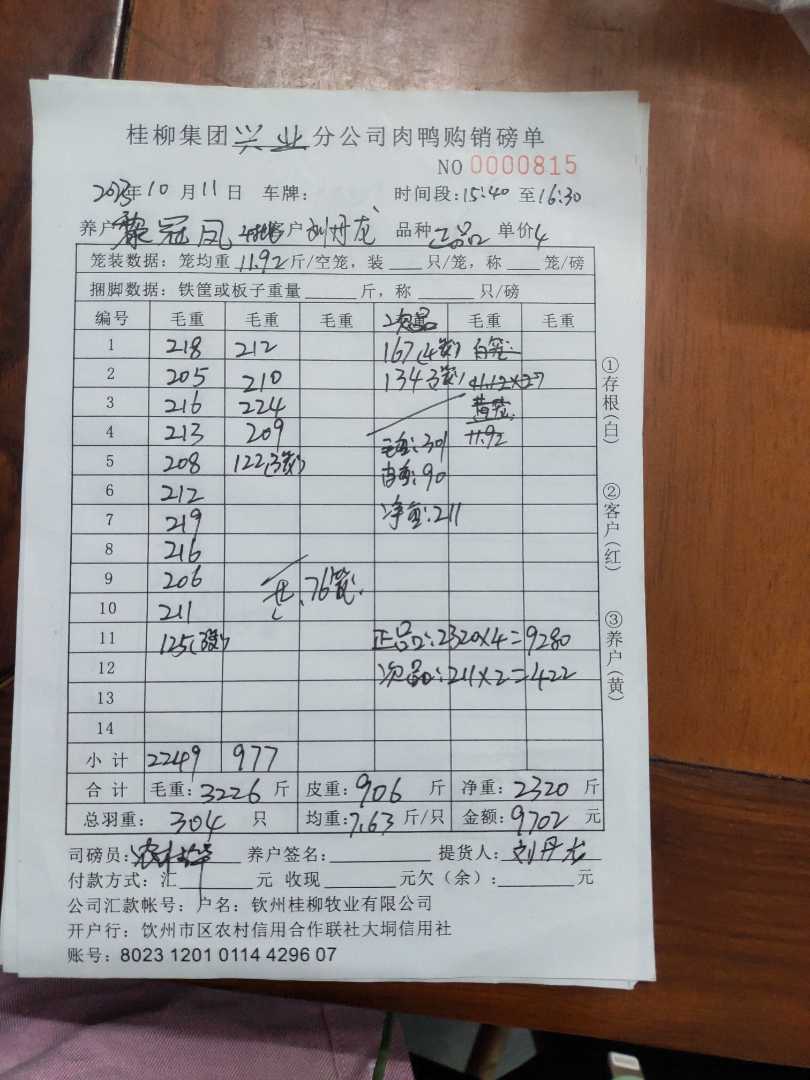 桂柳集团兴业分公司肉鸭购销磅单
NO 0000815
2023年10月11日 车牌: 时间段:15:40至16:30
养户 黎冠凤 客户 刘丹龙 品种 正品 单价 4
笼装数据: 笼均重 11.92 斤/空笼, 装 只/笼, 称 笼/磅
捆脚数据: 铁筐或板子重量 斤, 称 只/磅
编号 毛重 毛重 毛重 次品 毛重 毛重
1 218 212 167(4笼) 白笼:
2 205 210 134 3笼)
3 216 224 黄笼:
4 213 209 毛重:301 11.92
5 208 122(3笼) 皮重:90
6 212
7 219 净重:211
8 216
9 206 共、76笼.
10 211
11 125(3笼) 正品:2320×4=9280
12 次品:211×2=422
13
14
小计 2249 977
合计 毛重:3226斤 皮重:906斤 净重:2320斤
总羽重: 304 只 均重:7.63斤/只 金额:9702元
司磅员: 养户签名: 提货人: 刘丹龙
付款方式: 汇 元 收现 元欠(余): 元
公司汇款帐号: 户名: 钦州桂柳牧业有限公司
开户行: 饮州市区农村信用合作联社大垌信用社
账号: 8023 1201 0114 4296 07
①存根(白)
②客户(红)
③养户(黄)